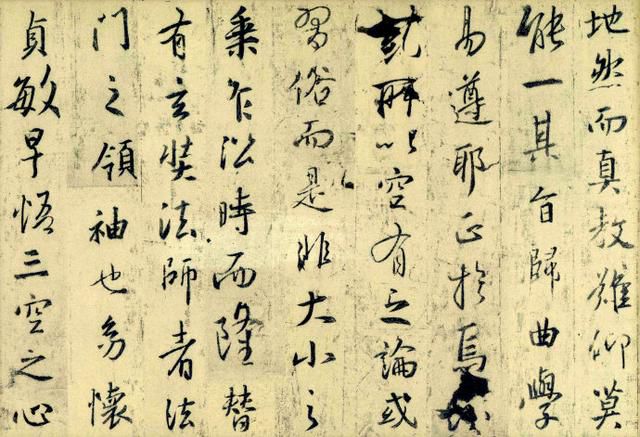 地然而真教難仰莫
能一其旨歸曲學
易遵耶正於焉
以空有之論或
習俗而是非大小之
乘乍沿時而隆替
有玄奘法師者法
門之領袖也幼懷
貞敏早悟三空之心